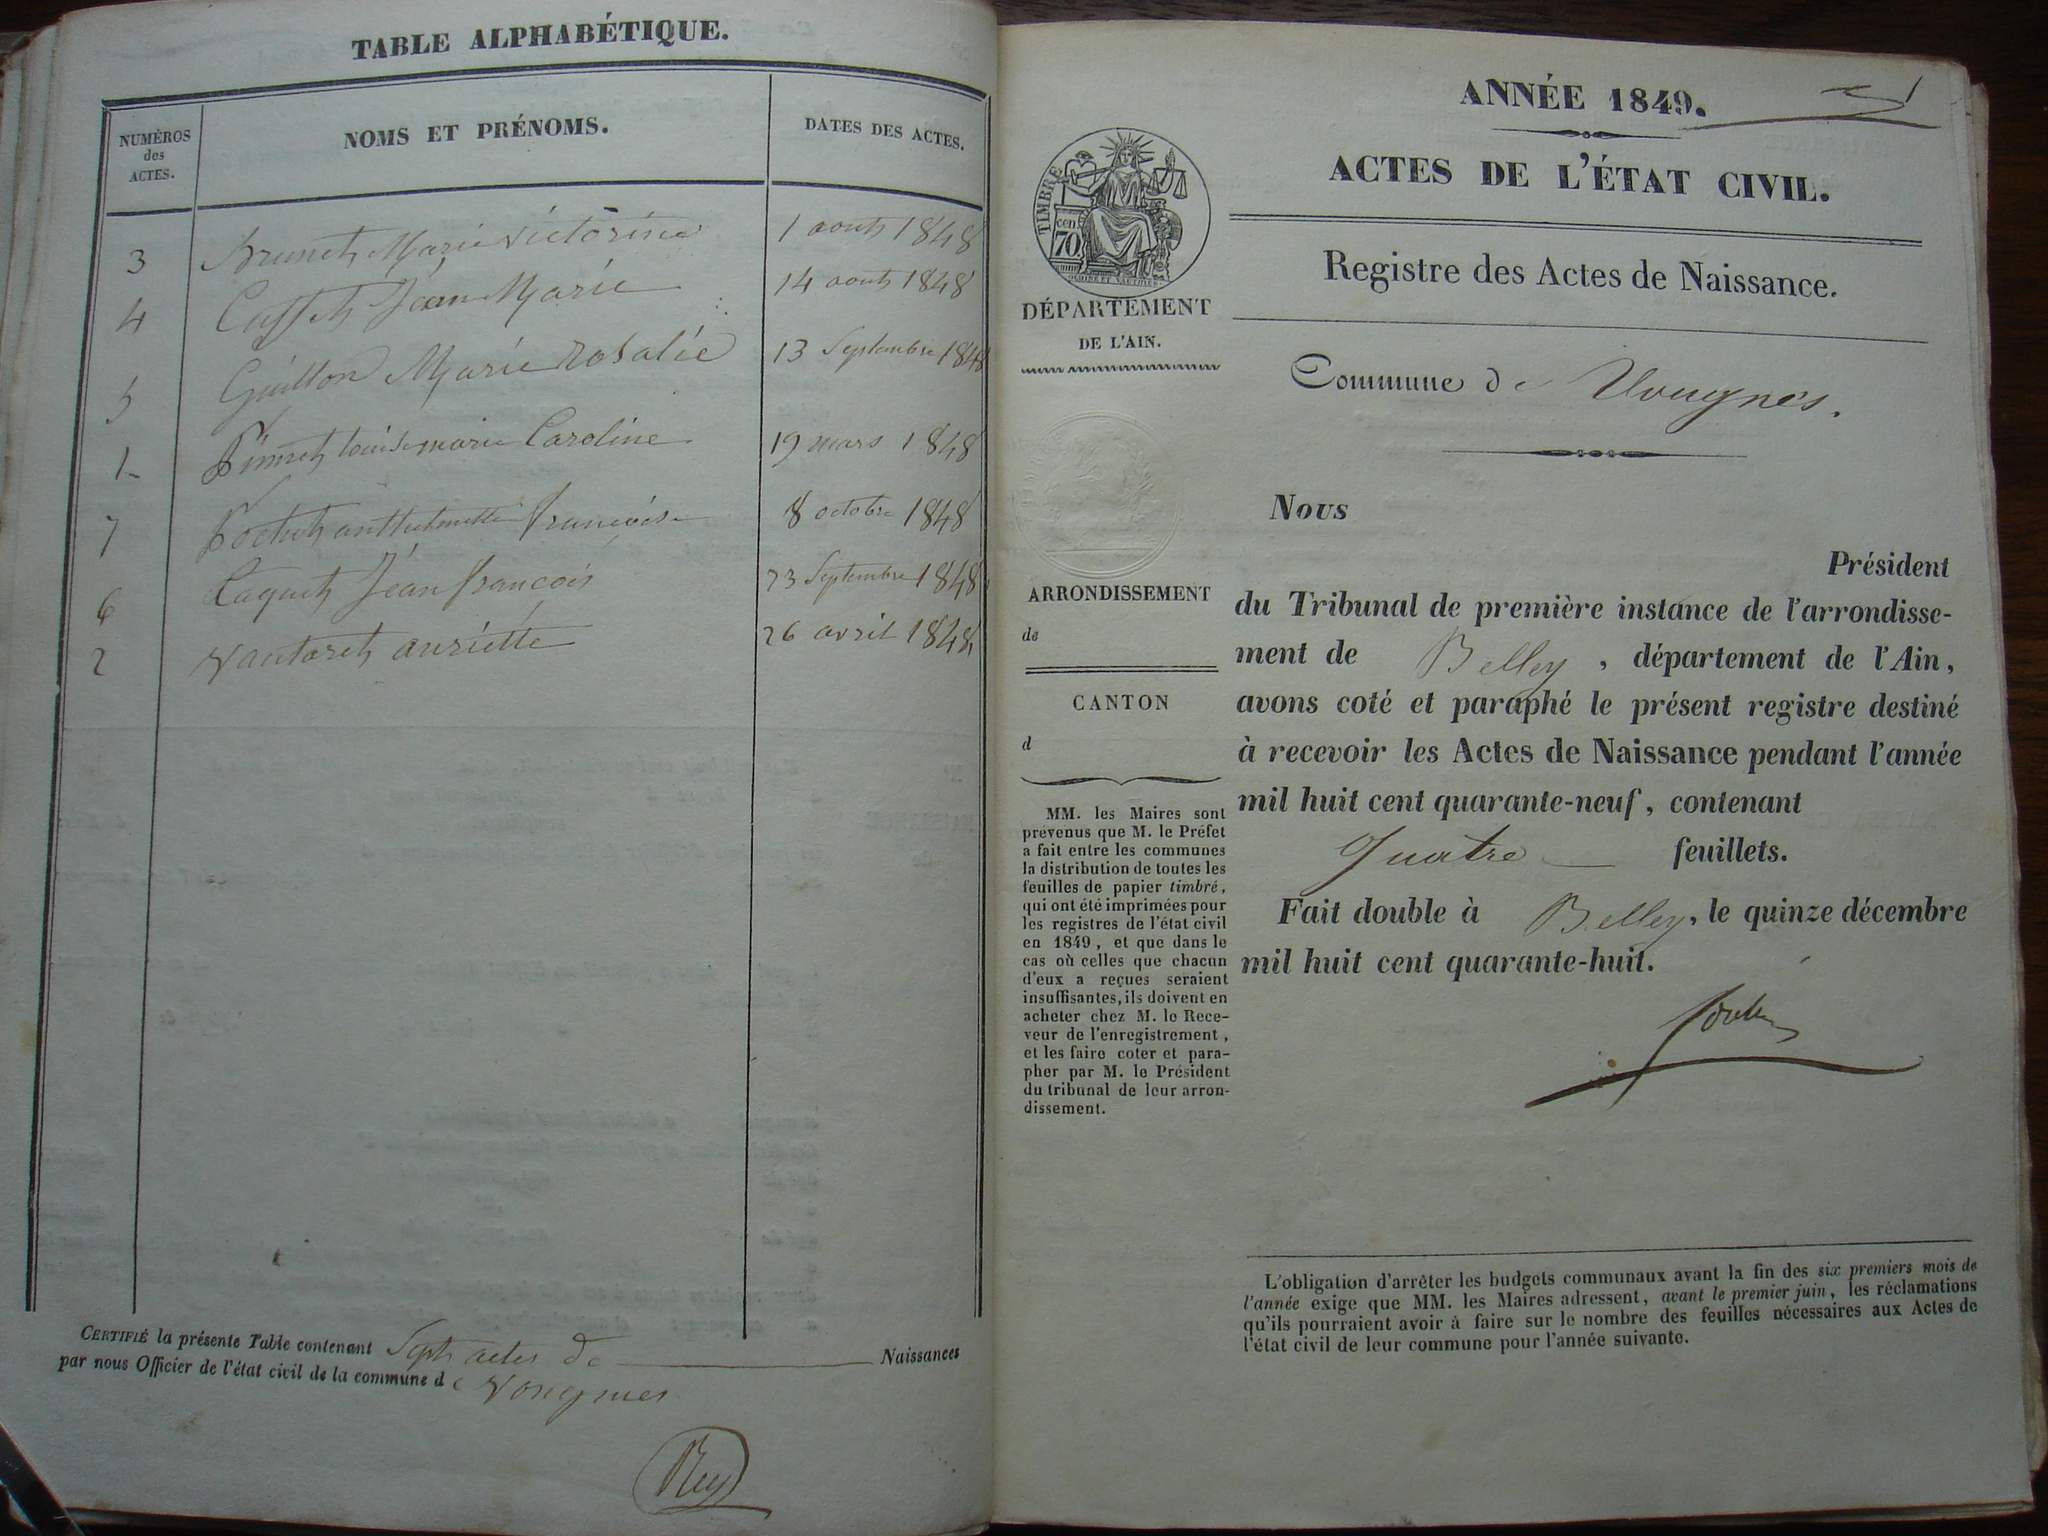 TABLE ALPHABÉTIQUE.
NUMÉROS
des
ACTES.
NOMS ET PRÉNOMS.
DATES DES ACTES.
3 Brunet Marie victorine 1 aout 1848
4 Jean Marie 14 aout 1848
5 Guillon Marie rosalie 13 Septembre 1848
1 louise marie Caroline 19 mars 1848
7 françoise 8 octobre 1848
6 Jean françois 23 Septembre 1848
2 auriette 26 avril 1848
CERTIFIÉ la présente Table contenant Sept actes de Naissances
par nous Officier de l'état civil de la commune de Vongnes
Rey
ANNÉE 1849.
ACTES DE L'ÉTAT CIVIL.
Registre des Actes de Naissance.
Commune de Vongnes.
TIMBRE
70 cen
DÉPARTEMENT
DE L'AIN.
ARRONDISSEMENT
de
CANTON
d
MM. les Maires sont
prévenus que M. le Préfet
a fait entre les communes
la distribution de toutes les
feuilles de papier timbré,
qui ont été imprimées pour
les registres de l'état civil
en 1849, et que dans le
cas où celles que chacun
d'eux a reçues seraient
insuffisantes, ils doivent en
acheter chez M. le Rece-
veur de l'enregistrement,
et les faire coter et para-
pher par M. le Président
du tribunal de leur arron-
dissement.
Nous
Président
du Tribunal de première instance de l'arrondisse-
ment de Belley, département de l'Ain,
avons coté et paraphé le présent registre destiné
à recevoir les Actes de Naissance pendant l'année
mil huit cent quarante-neuf, contenant
Quatre feuillets.
Fait double à Belley, le quinze décembre
mil huit cent quarante-huit.
L'obligation d'arrêter les budgets communaux avant la fin des six premiers mois de
l'année exige que MM. les Maires adressent, avant le premier juin, les réclamations
qu'ils pourraient avoir à faire sur le nombre des feuilles nécessaires aux Actes de
l'état civil de leur commune pour l'année suivante.